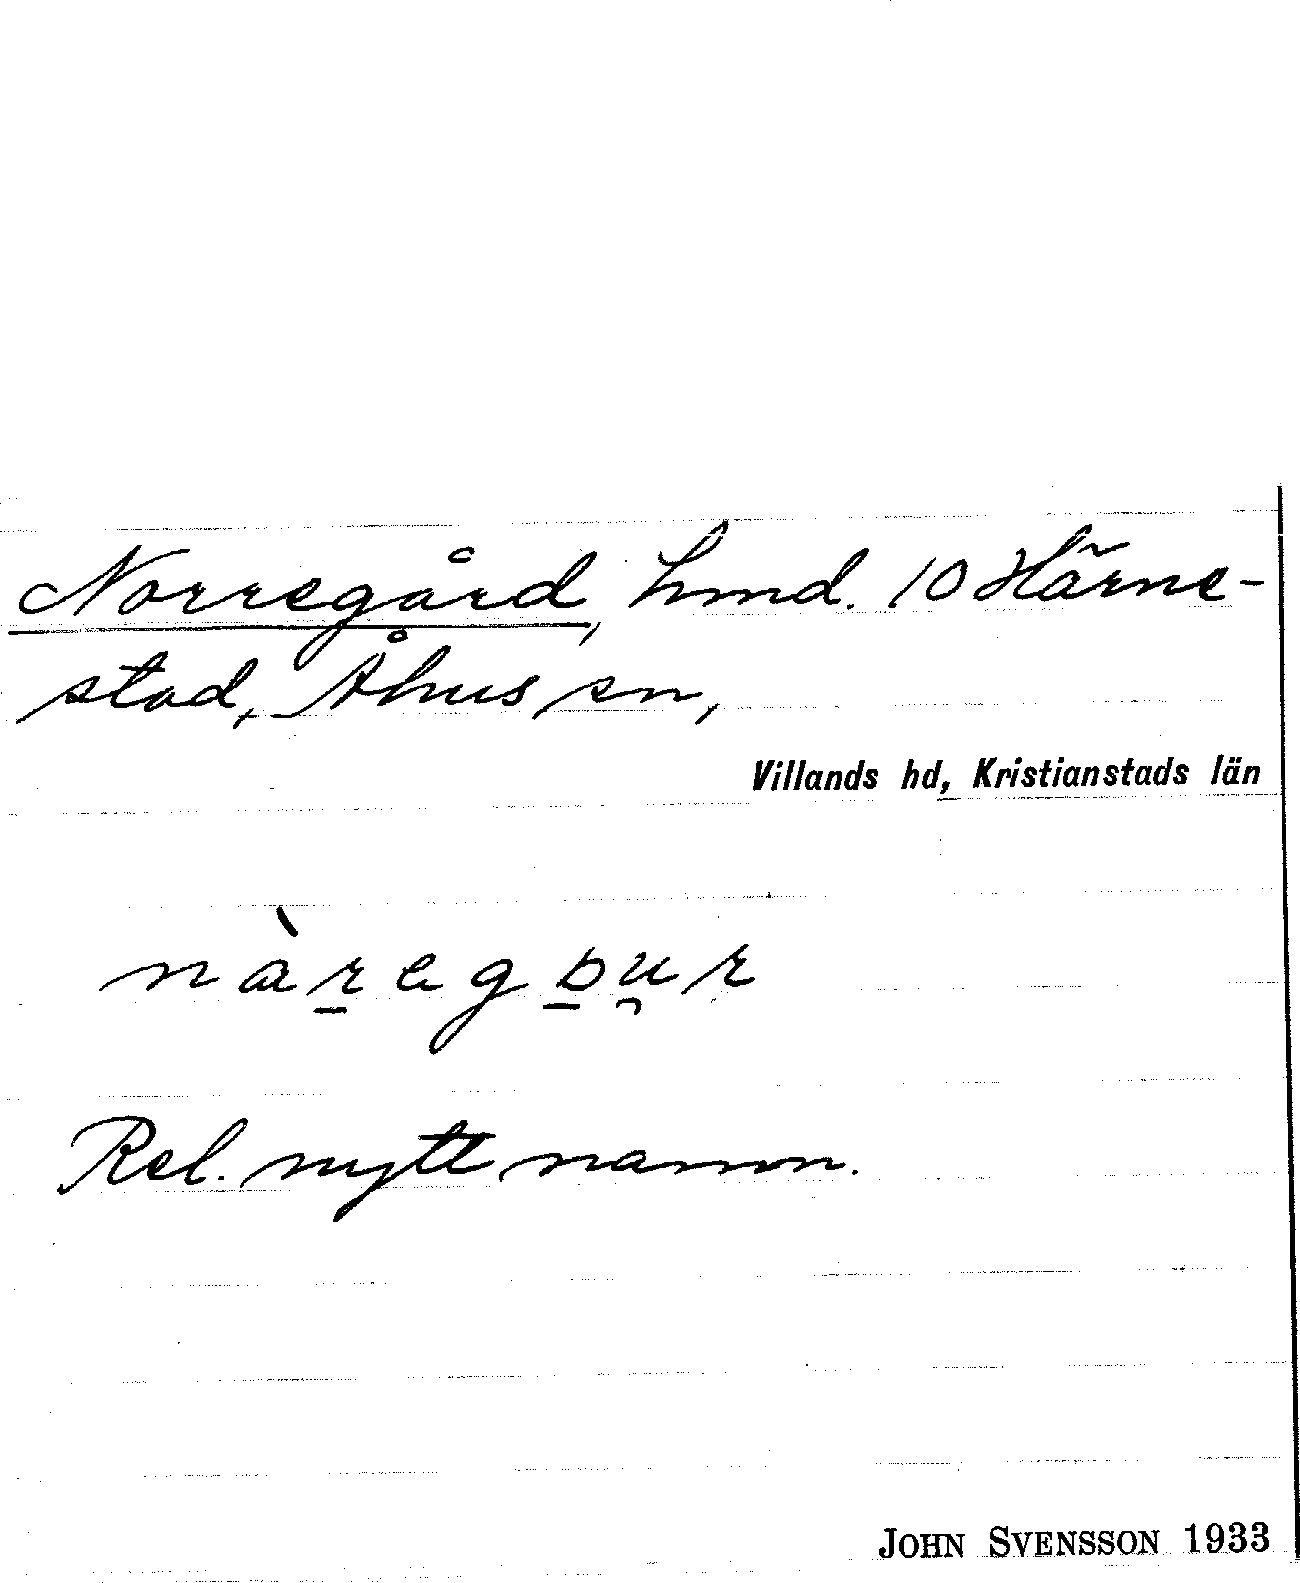 Norregård, hmd. 10 Härne-
stad, Åhus sn,
Villands hd, Kristianstads län
nàr̲egɒ̲u̯r
Rel. nytt namn.
JOHN SVENSSON 1933